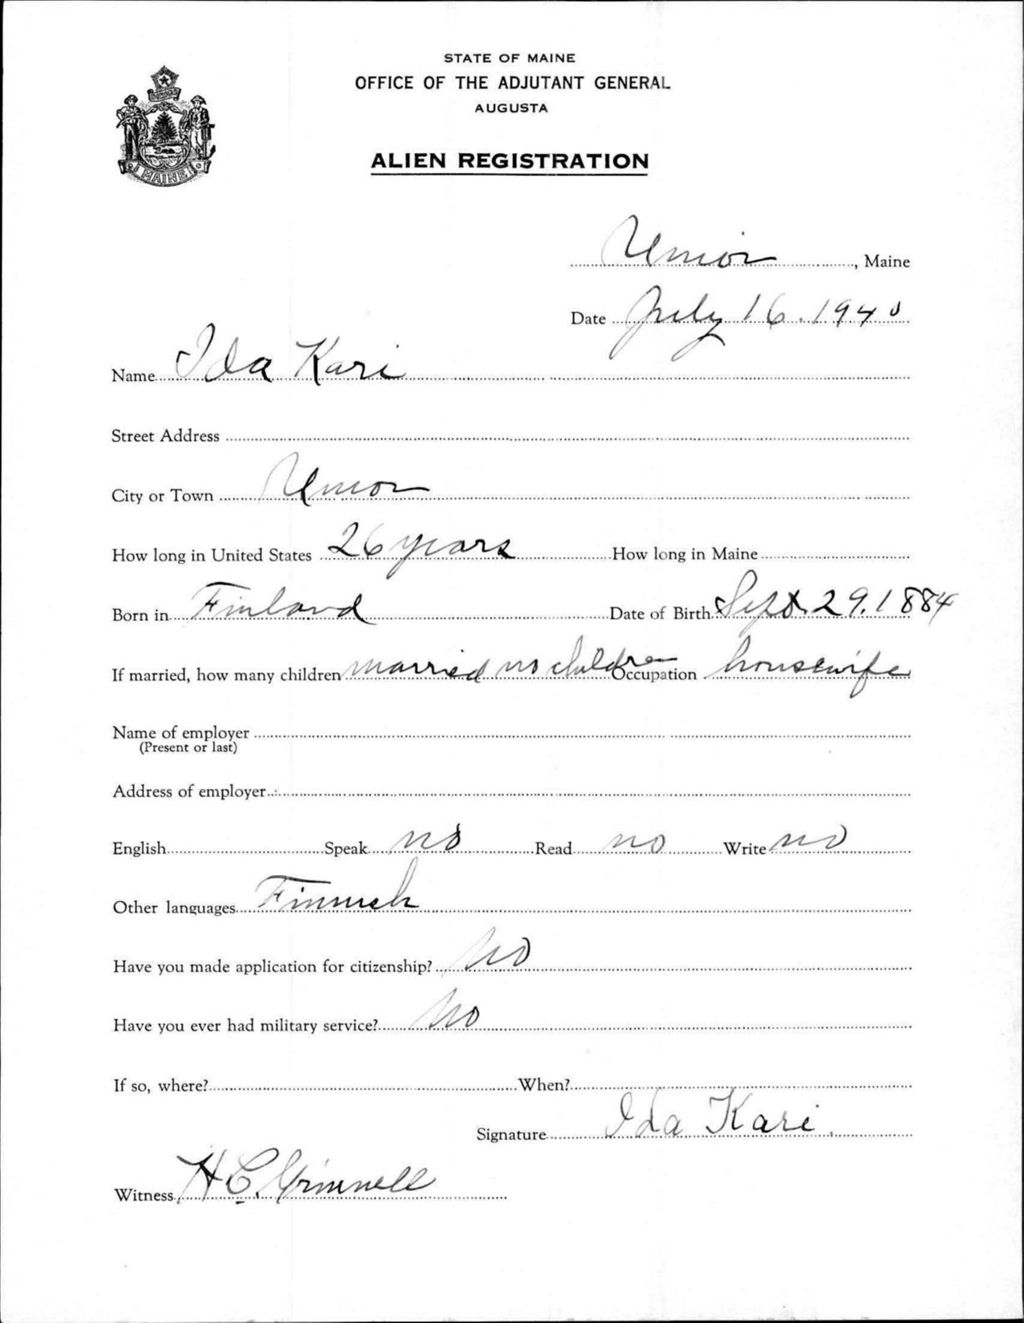 STATE OF MAINE
OFFICE OF THE ADJUTANT GENERAL
AUGUSTA
ALIEN REGISTRATION
MAINE
Union, Maine
Date July 16. 1940
Name Ida Kari
Street Address
City or Town Union
How long in United States 26 years How long in Maine
Born in Finland Date of Birth Sept. 29. 1884
If married, how many children married no children Occupation housewife
Name of employer
(Present or last)
Address of employer
English Speak no Read no Write no
Other languages Finnish
Have you made application for citizenship? No
Have you ever had military service? No
If so, where? When?
Signature Ida Kari.
Witness H C. Grinnell